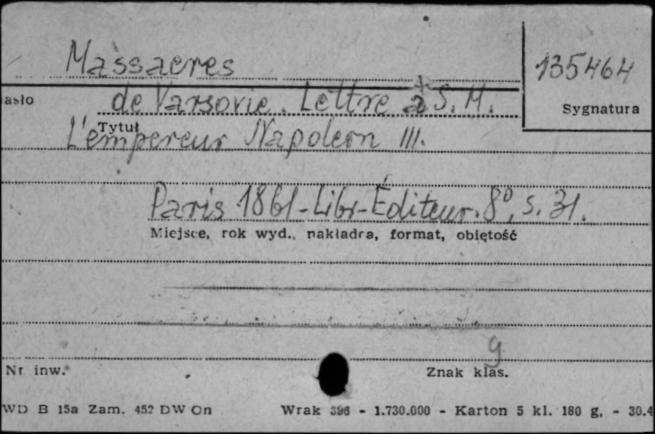 Massacres
135464
asło
de Varsovie. Lettre à S. M.
Sygnatura
Tytuł
L'empereur Napoleon III.
Paris 1861 - Libr-Éditeur. 8°, s. 31.
Miejsce, rok wyd., nakładca, format, objętość
g
Nr inw.
Znak klas.
WD B 15a Zam. 452 DW On Wrak 396 - 1.730.000 - Karton 5 kl. 180 g. - 30.4